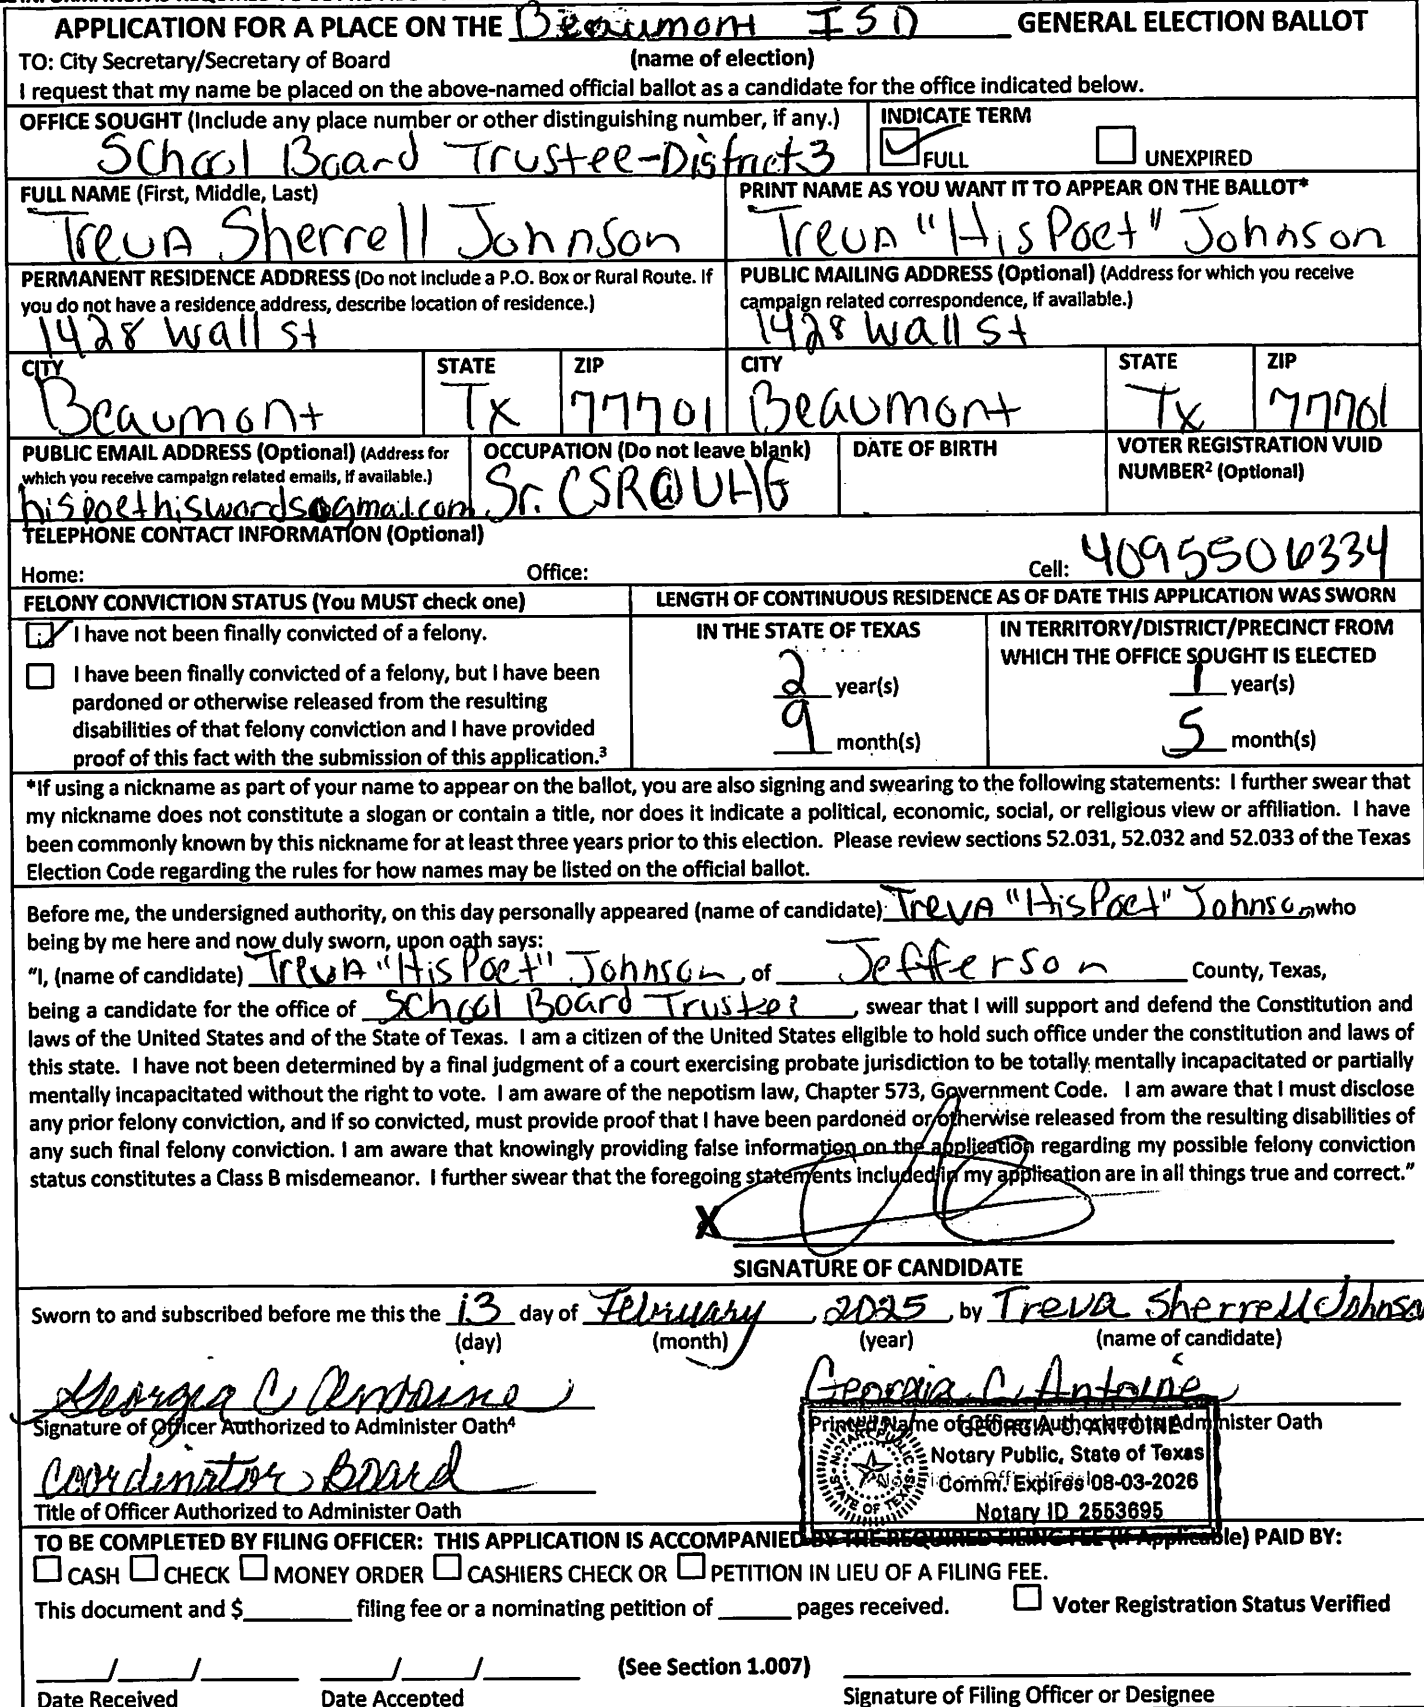 APPLICATION FOR A PLACE ON THE Beaumont ISD GENERAL ELECTION BALLOT
TO: City Secretary/Secretary of Board (name of election)
I request that my name be placed on the above-named official ballot as a candidate for the office indicated below.
OFFICE SOUGHT (Include any place number or other distinguishing number, if any.) INDICATE TERM
School Board Trustee-District 3 FULL UNEXPIRED
FULL NAME (First, Middle, Last) PRINT NAME AS YOU WANT IT TO APPEAR ON THE BALLOT*
Treva Sherrell Johnson Treva "His Poet" Johnson
PERMANENT RESIDENCE ADDRESS (Do not include a P.O. Box or Rural Route. If PUBLIC MAILING ADDRESS (Optional) (Address for which you receive
you do not have a residence address, describe location of residence.) campaign related correspondence, if available.)
1428 Wall St 1428 Wall St
CITY STATE ZIP CITY STATE ZIP
Beaumont Tx 77701 Beaumont Tx 77701
PUBLIC EMAIL ADDRESS (Optional) (Address for OCCUPATION (Do not leave blank) DATE OF BIRTH VOTER REGISTRATION VUID
which you receive campaign related emails, if available.) NUMBER² (Optional)
hispoethiswords@gmail.com Sr. CSR@UHG
TELEPHONE CONTACT INFORMATION (Optional)
Home: Office: Cell: 4095506334
FELONY CONVICTION STATUS (You MUST check one) LENGTH OF CONTINUOUS RESIDENCE AS OF DATE THIS APPLICATION WAS SWORN
I have not been finally convicted of a felony. IN THE STATE OF TEXAS IN TERRITORY/DISTRICT/PRECINCT FROM
WHICH THE OFFICE SOUGHT IS ELECTED
I have been finally convicted of a felony, but I have been 2 year(s) 1 year(s)
pardoned or otherwise released from the resulting
disabilities of that felony conviction and I have provided 9 month(s) 5 month(s)
proof of this fact with the submission of this application.³
*If using a nickname as part of your name to appear on the ballot, you are also signing and swearing to the following statements: I further swear that
my nickname does not constitute a slogan or contain a title, nor does it indicate a political, economic, social, or religious view or affiliation. I have
been commonly known by this nickname for at least three years prior to this election. Please review sections 52.031, 52.032 and 52.033 of the Texas
Election Code regarding the rules for how names may be listed on the official ballot.
Before me, the undersigned authority, on this day personally appeared (name of candidate) Treva "His Poet" Johnson, who
being by me here and now duly sworn, upon oath says:
"I, (name of candidate) Treva "His Poet" Johnson, of Jefferson County, Texas,
being a candidate for the office of School Board Trustee, swear that I will support and defend the Constitution and
laws of the United States and of the State of Texas. I am a citizen of the United States eligible to hold such office under the constitution and laws of
this state. I have not been determined by a final judgment of a court exercising probate jurisdiction to be totally mentally incapacitated or partially
mentally incapacitated without the right to vote. I am aware of the nepotism law, Chapter 573, Government Code. I am aware that I must disclose
any prior felony conviction, and if so convicted, must provide proof that I have been pardoned or otherwise released from the resulting disabilities of
any such final felony conviction. I am aware that knowingly providing false information on the application regarding my possible felony conviction
status constitutes a Class B misdemeanor. I further swear that the foregoing statements included in my application are in all things true and correct."
X
SIGNATURE OF CANDIDATE
Sworn to and subscribed before me this the 13 day of February, 2025, by Treva Sherrell Johnson
(day) (month) (year) (name of candidate)
Georgia C Antoine Georgia C. Antoine
Signature of Officer Authorized to Administer Oath⁴ Printed Name of Officer Authorized to Administer Oath
GEORGIA C. ANTOINE
Notary Public, State of Texas
Comm. Expires 08-03-2026
Notary ID 2553695
NOTARY PUBLIC
STATE OF TEXAS
Coordinator Board
Title of Officer Authorized to Administer Oath
TO BE COMPLETED BY FILING OFFICER: THIS APPLICATION IS ACCOMPANIED BY THE REQUIRED FILING FEE (If Applicable) PAID BY:
CASH CHECK MONEY ORDER CASHIERS CHECK OR PETITION IN LIEU OF A FILING FEE.
This document and $ filing fee or a nominating petition of pages received. Voter Registration Status Verified
/ / / / (See Section 1.007)
Date Received Date Accepted Signature of Filing Officer or Designee